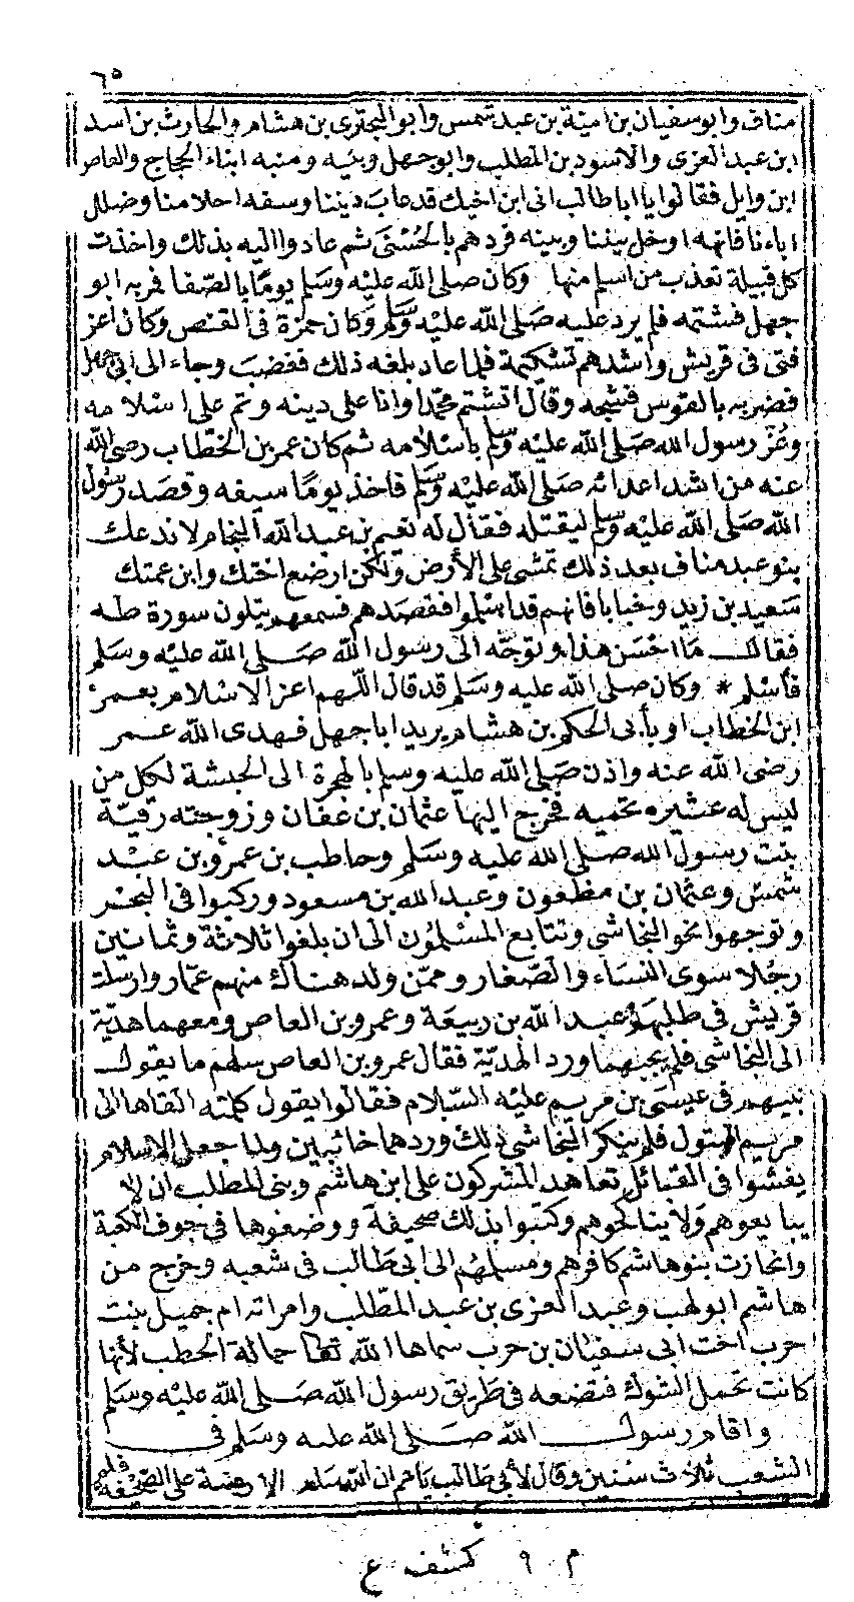 ٦٥
مناف وابوسفيان بن امية بن عبد شمس وابو البخترى بن هشام والحارث بن اسد
ابن عبد العزى والاسود بن المطلب وابو جهل ونبيه ومنبه ابناء الحجاج والعاص
ابن وايل فقالوا يا اباطالب ان ابن اخيك قد عاب ديننا وسفه احلامنا وضلل
اباءنا فانهه اوخل بيننا وبينه فردهم بالحسنى ثم عادوا اليه بذلك واخذت
كل قبيلة تعذب من اسلم منها وكان صلى الله عليه وسلم يومًا بالصفا فمر به ابو
جهل فشتمه فلم يرد عليه صلى الله عليه وسلم وكان حمزة فى القنص وكان اعز
فتى فى قريش واشدهم شكيمة فلما عاد بلغه ذلك فغضب وجاء الى ابى جهل
فضربه بالقوس فشجه وقال اتشتم محمدا وانا على دينه وتم على اسلامه
وعز رسول الله صلى الله عليه وسلم باسلامه ثم كان عمر بن الخطاب رضى الله
عنه من اشد اعدائه صلى الله عليه وسلم فاخذ يومًا سيفه وقصد رسول
الله صلى الله عليه وسلم ليقتله فقال له نعيم بن عبد الله النحام لا ندعك
بنو عبد مناف بعد ذلك تمشى على الأرض ولكن ارضع اختك وابن عمتك
سعيد بن زيد وخبابا فانهم قد اسلموا فقصدهم فسمعهم يتلون سورة طه
فقال ما احسن هذا وتوجه الى رسول الله صلى الله عليه وسلم
فأسلم * وكان صلى الله عليه وسلم قد قال اللهم اعز الاسلام بعمر
ابن الخطاب او بأبى الحكم بن هشام يريد ابا جهل فهدى الله عمر
رضى الله عنه واذن صلى الله عليه وسلم بالهجرة الى الحبشة لكل من
ليس له عشيره تحميه فخرج اليها عثمان بن عفان وزوجته رقية
بنت رسول الله صلى الله عليه وسلم وحاطب بن عمرو بن عبد
شمس وعثمان بن مظعون وعبد الله بن مسعود وركبوا فى البحر
وتوجهوا نحو النجاشى وتتابع المسلمون الى ان بلغوا ثلاثة وثمانين
رجلا سوى النساء والصغار وممن ولد هناك منهم عمار وارسلت
قريش فى طلبهم عبد الله بن ربيعة وعمرو بن العاص ومعهما هدية
الى النجاشى فلم يجبهما ورد الهدية فقال عمرو بن العاص سلهم ما يقول
نبيهم فى عيسى بن مريم عليه السلام فقالوا يقول كلمته القاها الى
مريم البتول فلم ينكر النجاشى ذلك وردهما خائبين ولما جعل الاسلام
يفشوا فى القبائل تعاهد المشركون على ابن هاشم وبنى المطلب ان لا
يبايعوهم ولا يناكحوهم وكتبوا بذلك صحيفة ووضعوها فى جوف الكعبة
وانحازت بنو هاشم كافرهم ومسلمهم الى ابى طالب فى شعبه وخرج من
هاشم ابو لهب وعبد العزى بن عبد المطلب وامراته ام جميل بنت
حرب اخت ابى سفيان بن حرب سماها الله تعا حمالة الحطب لأنها
كانت تحمل الشوك فتضعه فى طريق رسول الله صلى الله عليه وسلم
واقام رسول الله صلى الله عليه وسلم فى
الشعب ثلاث سنين وقال لأبى طالب يا عم ان الله سلط الارضة على الصحيفة فلم
م ٩ كشف ع